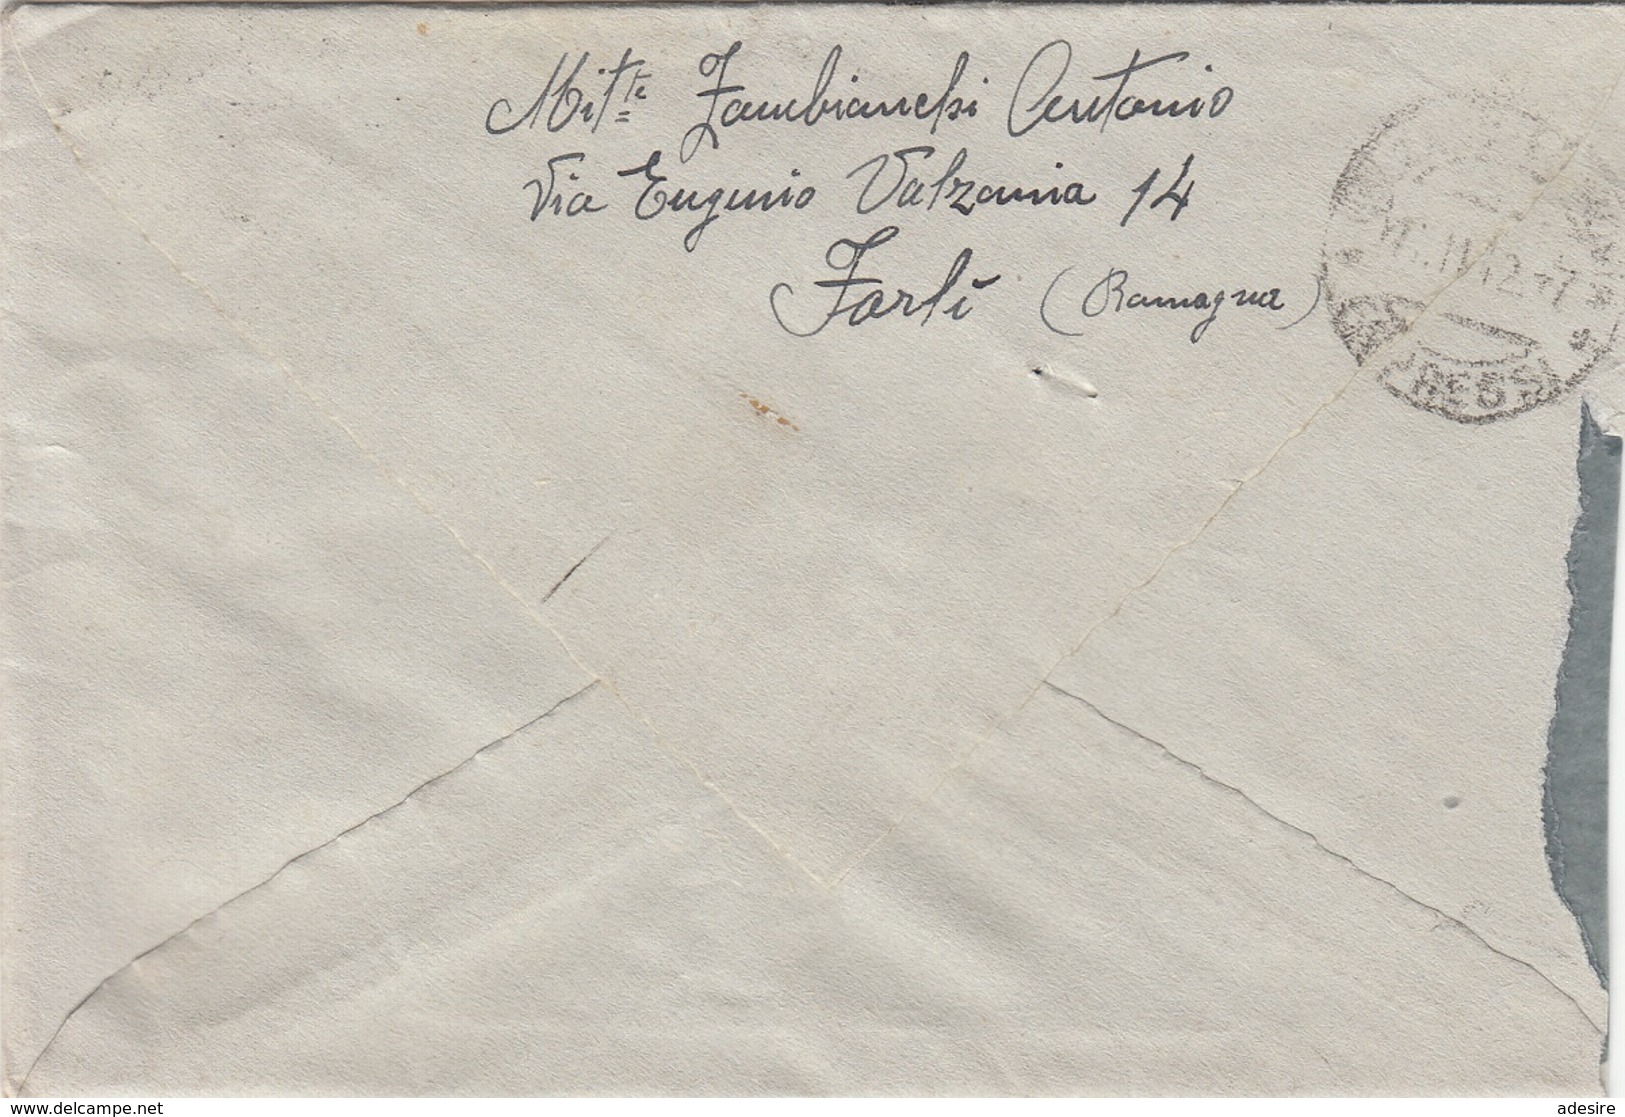 Mitte Zambianchi Antonio
Via Eugenio Valzania 14
Forlì (Romagna)
www.delcampe.net
adesire